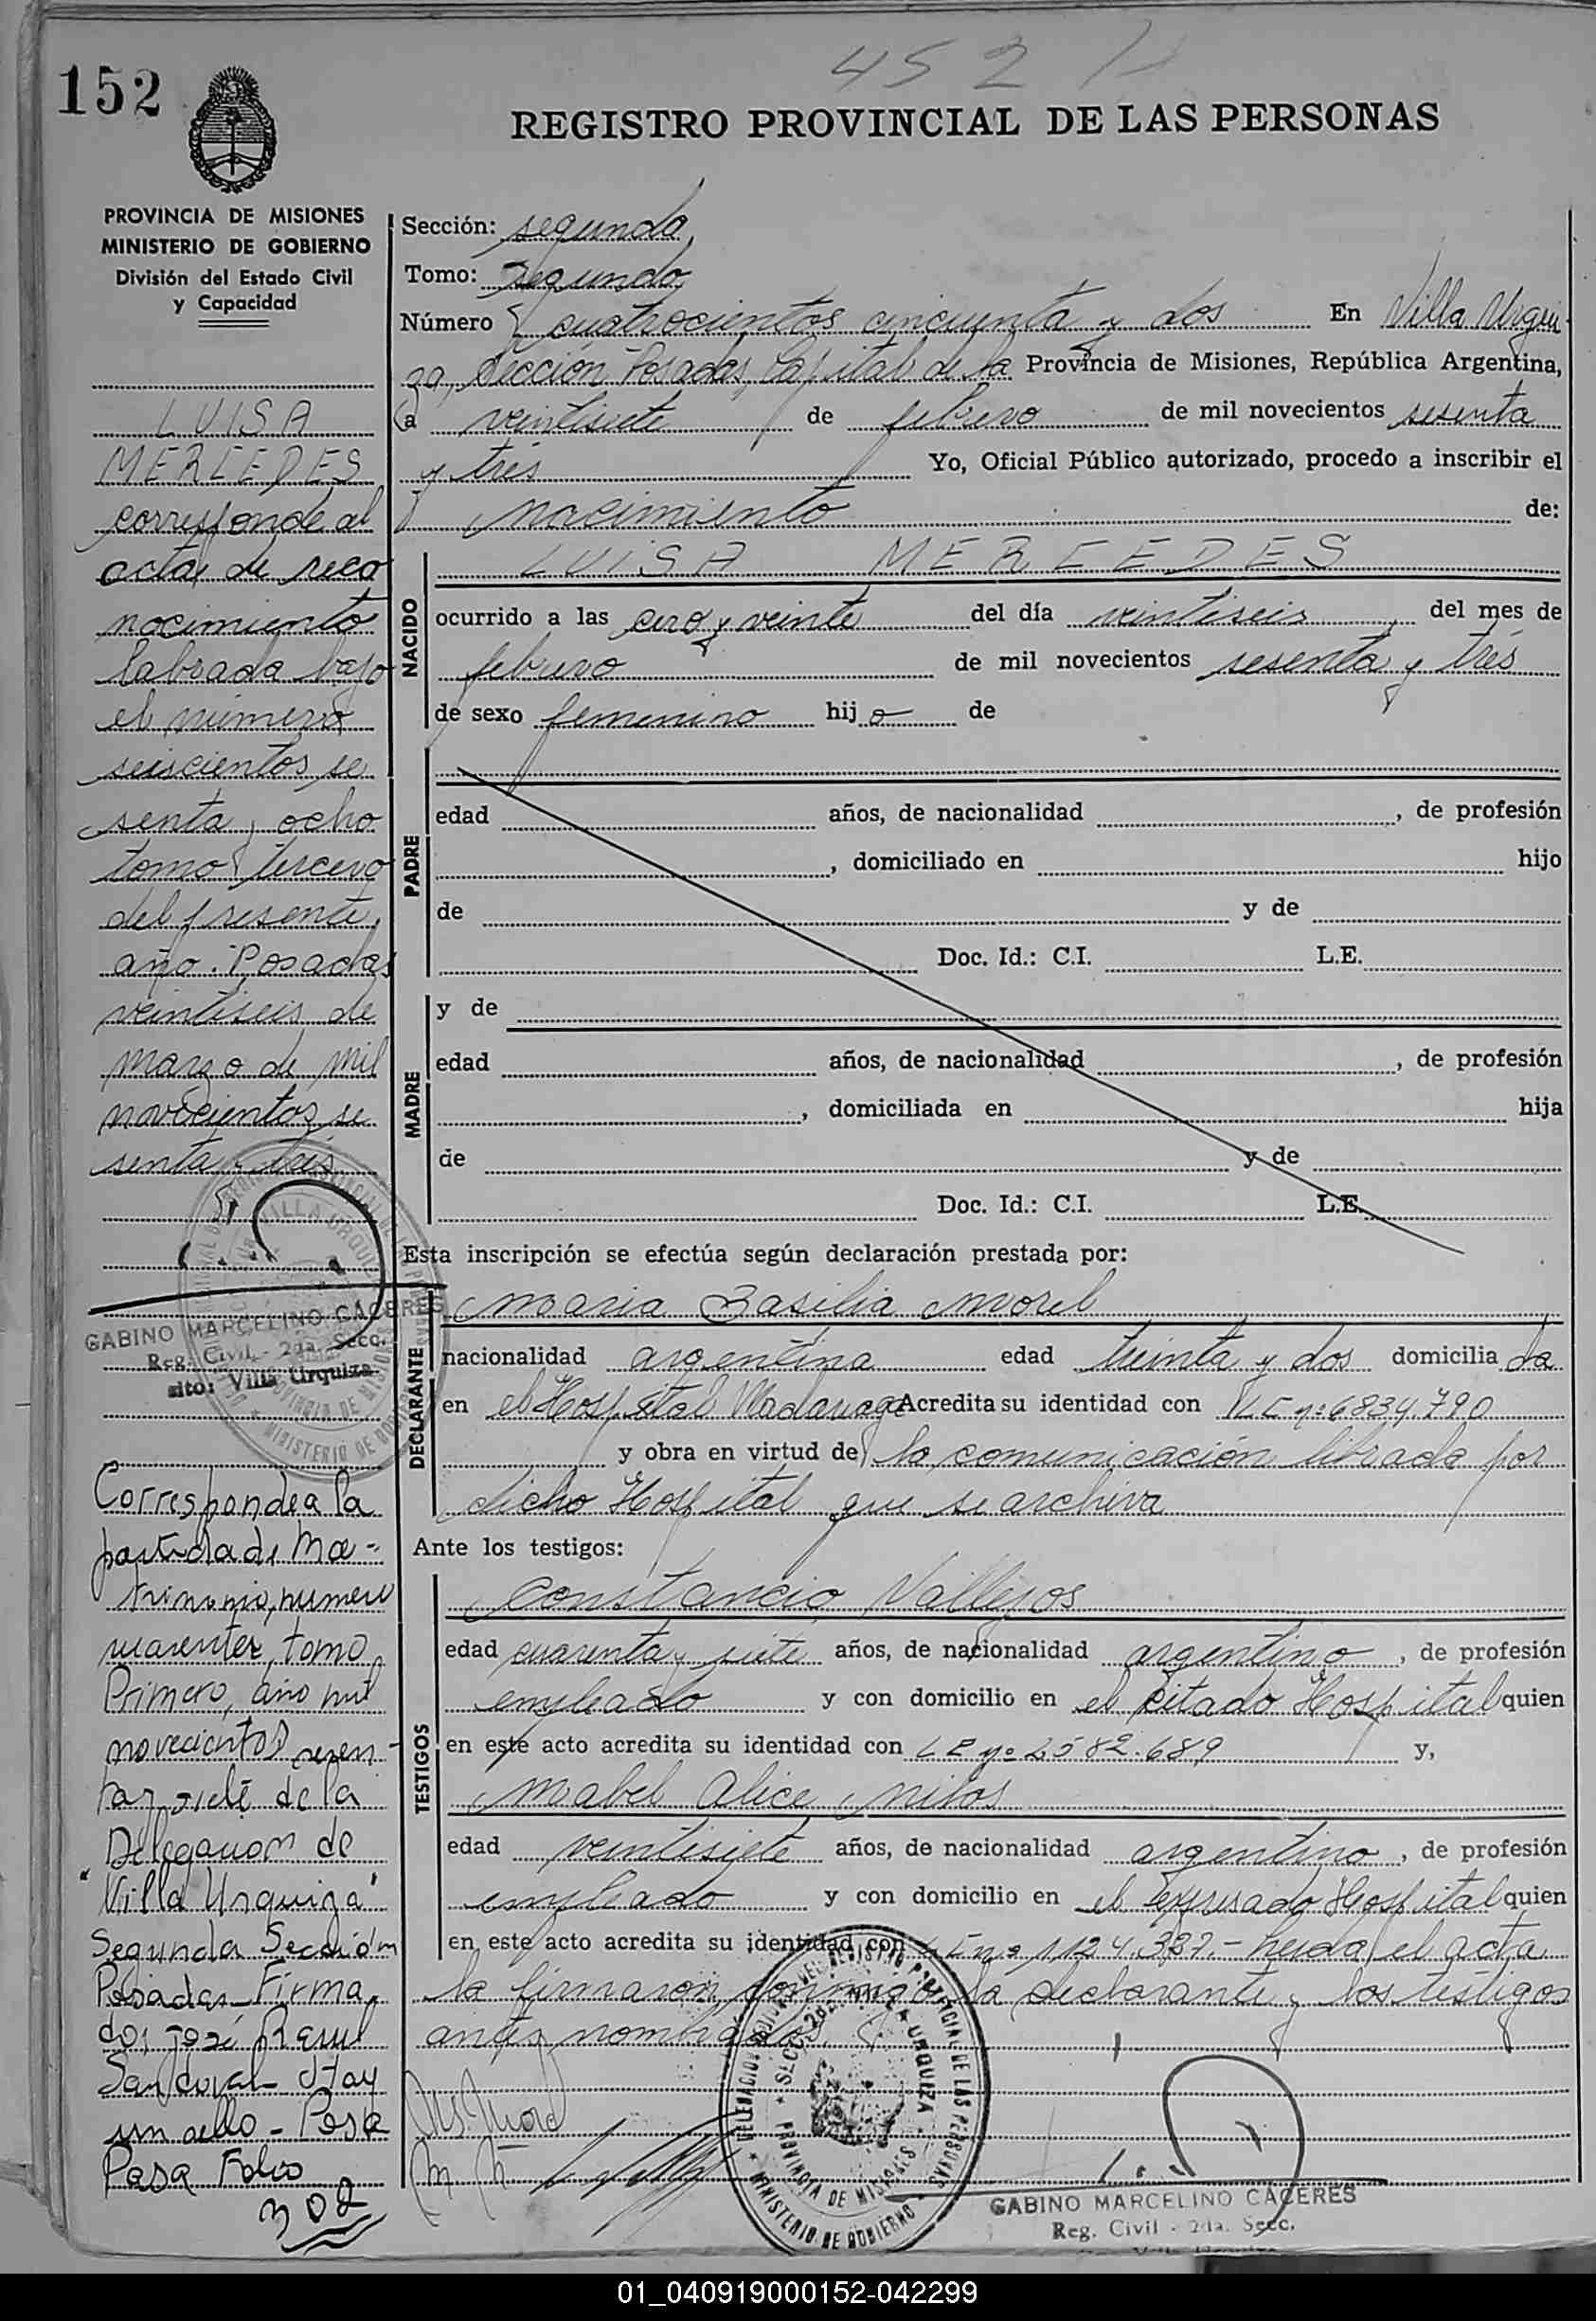 452
152
REGISTRO PROVINCIAL DE LAS PERSONAS
PROVINCIA DE MISIONES
MINISTERIO DE GOBIERNO
División del Estado Civil
y Capacidad
LUISA
MERCEDES
corresponde al
acta de reco
nocimiento
labrada bajo
el número
seiscientos se
senta y ocho
tomo tercero
del presente
año. Posadas
veintiseis de
marzo de mil
novecientos se
senta y tres
GABINO MARCELINO CACERES
Reg. Civil - 2da. Secc.
sito: Villa Urquiza
Corresponde a la
partida de Ma-
trimonio, numero
cuarenta, tomo
Primero, año mil
novecientos sesen-
ta y siete de la
Delegacion de
"Villa Urquiza"
Segunda Sección
Posadas - Firma
dos José Raul
Sandoval Hay
un sello - Pasa
Pasa Folio
302
Sección: segunda
Tomo: segundo
Número cuatrocientos cincuenta y dos En Villa Urqui
za, Sección Posadas, Capital de la Provincia de Misiones, República Argentina,
a veintisiete de febrero de mil novecientos sesenta
y tres Yo, Oficial Público autorizado, procedo a inscribir el
nacimiento de:
NACIDO
LUISA MERCEDES
ocurrido a las cero y veinte del día veintiseis del mes de
febrero de mil novecientos sesenta y tres
de sexo femenino hij a de
PADRE
edad años, de nacionalidad , de profesión
, domiciliado en hijo
de y de
Doc. Id.: C.I. L.E.
MADRE
y de
edad años, de nacionalidad , de profesión
, domiciliada en hija
de y de
Doc. Id.: C.I. L.E.
Esta inscripción se efectúa según declaración prestada por:
DECLARANTE
Maria Basilia Morel
nacionalidad argentina edad treinta y dos domicilia da
en el Hospital Madariaga Acredita su identidad con LC nº 6834.790
y obra en virtud de la comunicación librada por
dicho Hospital que se archiva
Ante los testigos:
TESTIGOS
Constancio Vallejos
edad cuarenta y siete años, de nacionalidad argentino , de profesión
empleado y con domicilio en el citado Hospital quien
en este acto acredita su identidad con LE nº 2582.689 y,
Mabel Alice
edad veintisiete años, de nacionalidad argentino , de profesión
empleado y con domicilio en el expresado Hospital quien
en este acto acredita su identidad con nº 1124.327.- Leida el acta
la firmaron conmigo la declarante y los testigos
antes nombrados.
DELEGACION REGISTRO PROVINCIAL DE LAS PERSONAS
SECC. 2da. VILLA URQUIZA
PROVINCIA DE MISIONES
MINISTERIO DE GOBIERNO
GABINO MARCELINO CACERES
Reg. Civil - 2da. Secc.
01_040919000152-042299